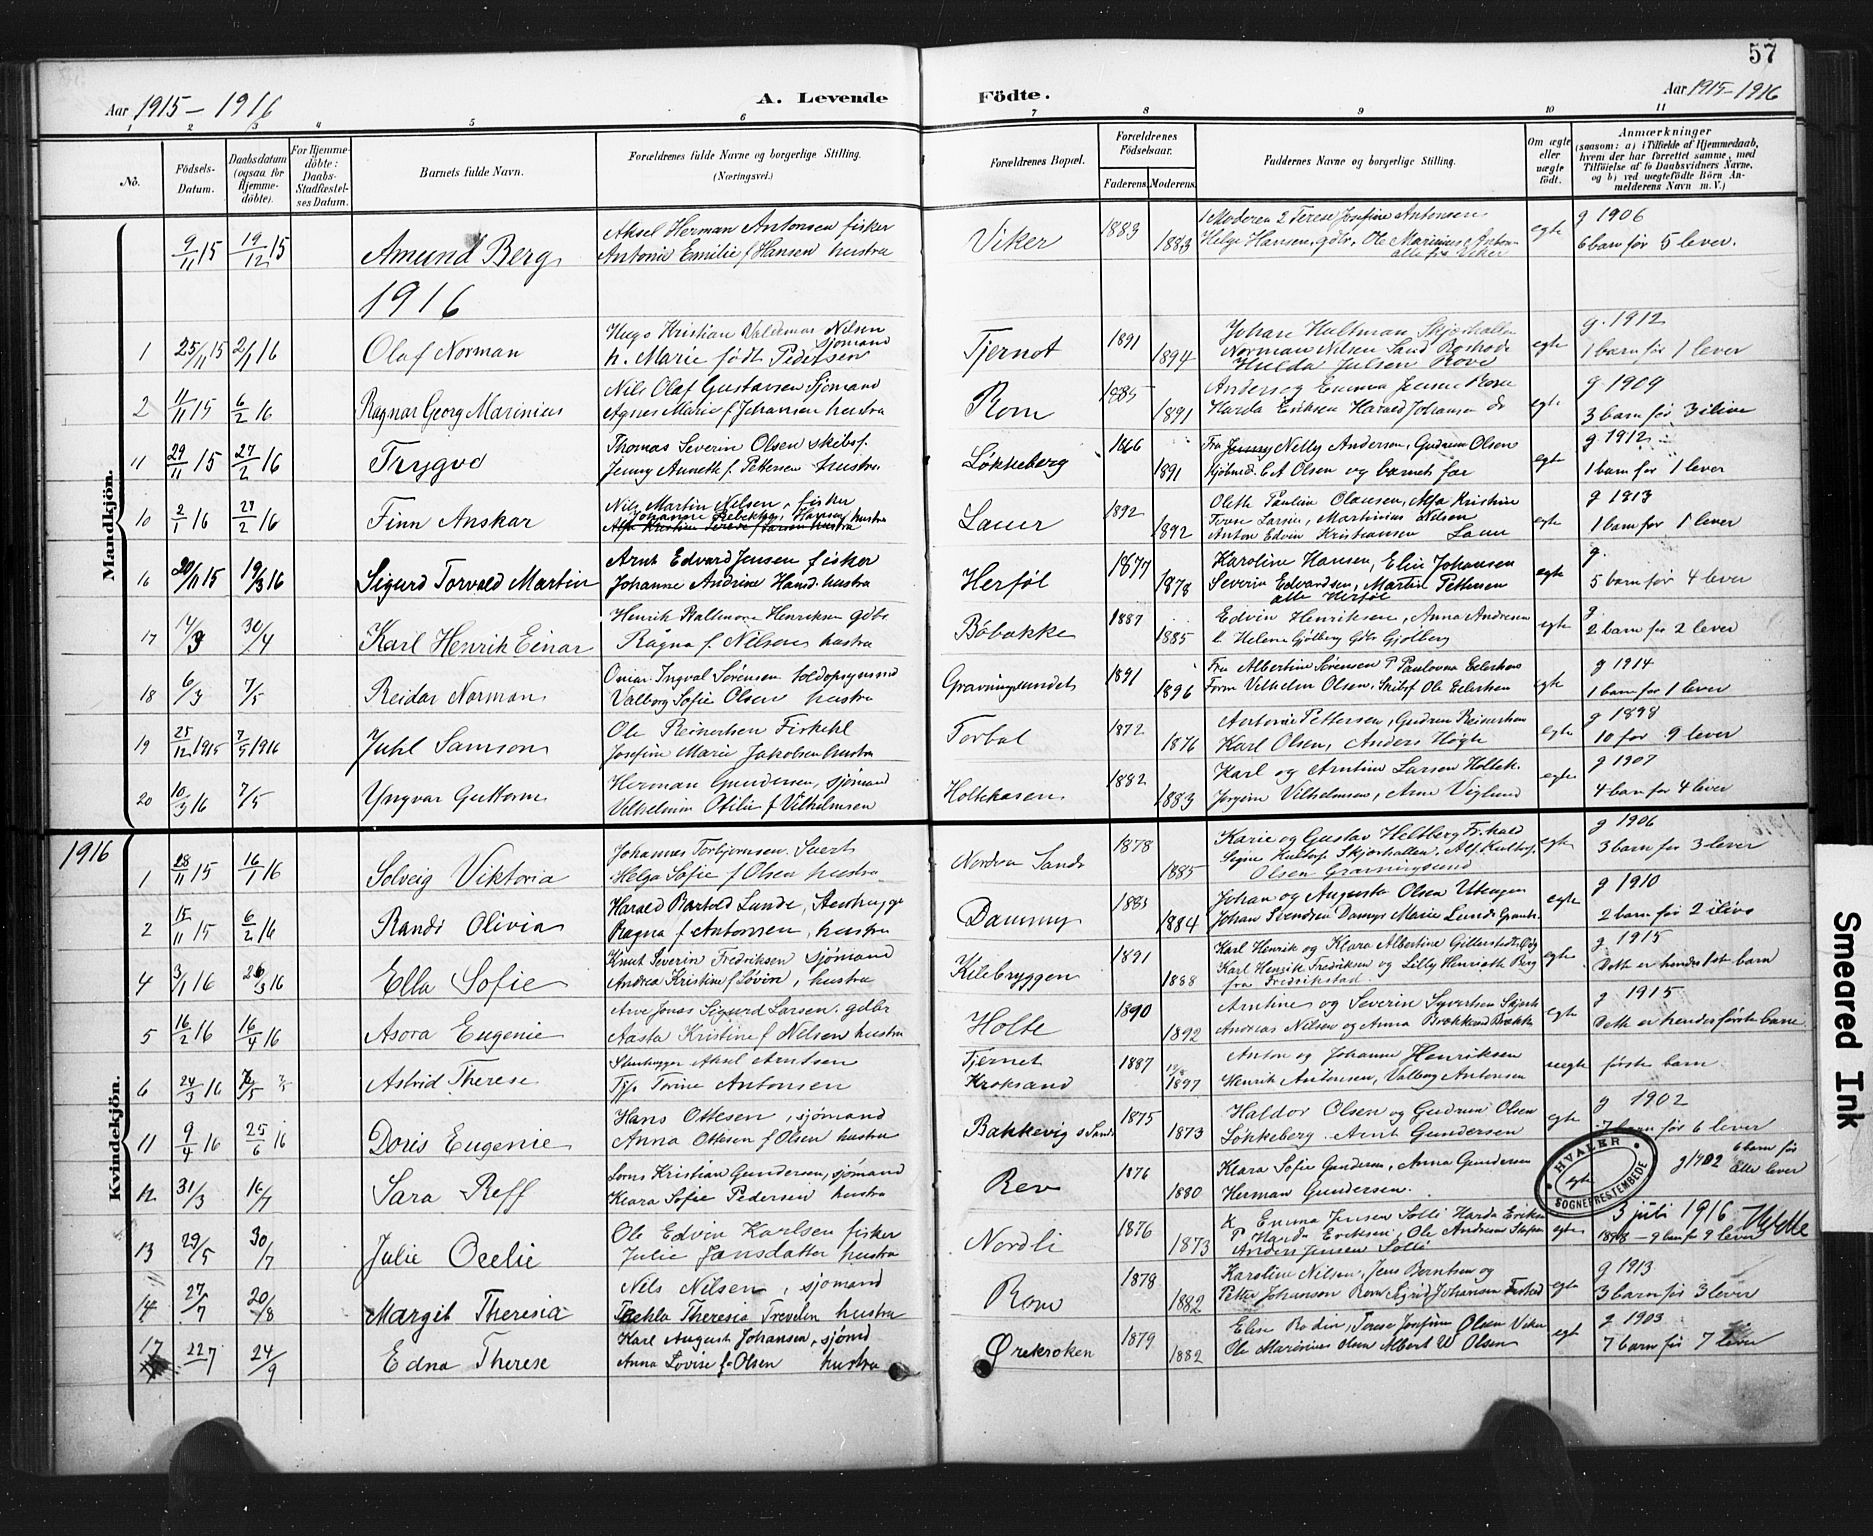 57
Aar 1915 – 1916
A. Levende
Födte.
Aar 1915–1916
1 2 3 4 5 6 7 8 9 10 11
No.
Födsels-Datum.
Daabsdatum (ogsaa for Hjemme-döbte).
For Hjemme-döbte: Daabs-Stadfæstel-ses Datum.
Barnets fulde Navn.
Forældrenes fulde Navne og borgerlige Stilling. (Næringsvei.)
Forældrenes Bopæl.
Forældrenes Födselsaar.
Faderens. Moderens.
Faddernes Navne og borgerlige Stilling.
Om ægte eller uægte födt.
Anmærkninger
(saasom: a) i Tilfælde af Hjemmedaab, hvem der har forrettet samme, med Tilföielse af to Daabsvidners Navne, og b) ved uægtefödte Börn An-melderens Navn m. V.)
Mandkjön.
9/11 15 19/12 15 Amund Berg
Aksel Herman Antonsen fisker
Antonie Emilie f Hansen hustru
Viker 1883 1883
1 Moderen 2 Terese Josefine Antonsen
Helge Hansen, gdbr, Ole Marinius Anton-
alle fra Viker
egte
g 1906
6 barn før 5 lever.
1916
1 25/11 15 2/1 16 Olaf Norman
Hugo Kristian Valdemar Nilsen
Sjømand
h. Marie født Pedersen
Tjernot 1891 1894
Johan Hultman, Skjærhallen
Norman Nilsen Sand
Hulda Julsen Rove
egte
g. 1912
1 barn før 1 lever
2 11/11 15 6/2 16 Ragnar Georg Marinius
Nils Olaf Gustavsen Sjømand
Agnes Marie f Johansen hustru
Rom 1885 1891
Anders og Emma Jensen Rom
Harda Eriksen Harald Johansen do
egte
g 1909
3 barn før 3 ilive
11 29/11 15 27/2 16 Trygve
Thomas Severin Olsen skibsf.
Jenny Annette f. Pettersen hustru
Løkkeberg 1866 1891
Fru Jenny Nelly Andersen, Gudrun Olsen
C A Olsen og barnets far
egte
g 1912
1 barn før 1 lever
10 2/1 16 27/2 16 Finn Anskar
Nils Martin Nilsen, fisker
Johanne Rebekka, Hansen, hustru
Lauer 1892 1892
Oleth Pauline Olausen, Alfa Kristine
Terese Larsen, Martinius Nilsen
Anton Edvin Kristiansen Lauer
egte
g 1913
1 barn før 1 lever
16 20/11 15 19/3 16 Sigurd Torvald Martin
Arnt Edvard Jensen fisker
Johanne Andrine Hansd. hustru
Herføl 1877 1878
Karoline Hansen, Elise Johansen
Severin Edvardsen, Martin Pettersen
alle Herføl
egte
g.
5 barn før 4 lever
17 14/3 30/4 Karl Henrik Einar
Henrik Waldemar Henriksen gdbr
Ragna f. Nilsen hustru
Bøbakke 1887 1885
Edvin Henriksen, Anna Andresen
Helene Gjølberg Gdbr Gjølberg
egte
g
2 barn før 2 lever
18 6/3 7/5 Reidar Norman
Omar Ingval Sørensen toldopsynsmd
Valborg Sofie Olsen hustru
Gravningsundet 1891 1896
Fru Albertine Sørensen P Paulowna Eilertsen
Form Vilhelm Olsen, Skibsf Ole Eilertsen
egte
g 1914
1 barn før 1 lever
19 25/12 1915 7/5 1916 Juhl Samson
Ole Reinertsen Fiskehl
Josefine Marie Jakobsen hustru
Torbal 1872 1876
Antonie Pettersen, Gudrun Reinertsen
Karl Olsen, Anders Høgh
egte
g 1898
10 før 9 lever
20 10/3 16 7/5 Yngvar Guttorm
Herman Gundersen, sjømand
Vilhelmine Otilie f Vilhelmsen
Holtekasen 1882 1883
Karl og Arntine Larsen Holtek.
Jørgine Vilhelmsen, Arne Viglund
egte
g 1907
4 barn før 4 lever
1916
Kvindekjön.
1 28/11 15 16/1 16 Solveig Viktoria
Johannes Torbjørnsen.
Helga Sofie f Olsen hustru
Nordre Sand 1878 1885
Karie og Gustav Heltberg Fr.hald
Signe Skjærhallen, Alf
Olsen Gravningsund
egte
g 1906
3 barn før 3 lever
2 15/11 15 6/2 16 Randi Olivia
Harald Bartold Lunde, Stenhugger
Ragna f Antonsen, hustru
Dammyr 1885 1884
Johan og Augusta Olsen Utengen
Johan Svendsen Damyr Marie Lunde
egte
g 1910
2 barn før 2 ilive
4 3/1 16 26/3 16 Ella Sofie
Knut Severin Fredriksen sjømand
Andrea Kristine f Lövin, hustru
Kilebryggen 1891 1888
Karl Henrik og Klara Albertine Gillerstedt,
Karl Henrik Fredriksen og Lilly Henriette Berg
fra Fredrikstad
egte
g. 1915
Dette er hendes 1ste barn
5 16/2 16 16/4 16 Asora Eugenie
Arve Jonas Sigurd Larsen. gdbr
Aasta Kristine f Nilsen hustru
Holte 1890 1892
Arntine og Severin Syvertsen Skjærh
Andreas Nilsen og Anna Brække
egte
g 1915
Dette er hendes første barn
6 24/3 16 7/5 Astrid Therese
Stenhugger Aksel Arntsen
Tjp Torine Antonsen
Tjernet
Kroksand
1887 1897
Anton og Johanne Henriksen
Henrik Antonsen, Valborg Antonsen
uegte
første barn
11 9/4 16 25/6 16 Doris Eugenie
Hans Ottesen, sjømand
Anna Ottesen f Olsen hustru
Bakkevig s Sand 1875 1873
Haldor Olsen og Gudrun Olsen
Løkkeberg. Arnt Gundersen
egte
g 1902
7 barn før 6 lever
12 31/3 16/7 Sara Reff
Lorns Kristian Gundersen, sjømand
Klara Sofie Pedersen hustru
Rev 1876 1880
Klara Sofie Gundersen, Anna Gundersen
Herman Gundersen.
egte
g 1902
6 barn før
alle lever
HVALER
SOGNEPRESTEMBEDE
3 juli 1916
13 29/5 30/7 Julie Ocelie
Ole Edvin Karlsen fisker
Julie Jansdatter hustru
Nordli 1876 1873
Emma Jensen Solli Harda Eriksen
P Harda Eriksen, Ole Andreas
Anders Jensen Solli
egte
1898 – 9 barn før 9 lever
14 27/7 20/8 Margit Theresia
Nils Nilsen, sjømand
Thekla Theresia Trevelen hustru
Rom 1878 1882
Karoline Nilsen, Jens Berntsen og
Petter Johansen Rom Sigrid Johansen
egte
g 1913
3 barn før 3 lever
17 22/7 24/9 Edna Therese
Karl August Johansen, sjømd
Anna Lovise f. Olsen hustru
Ørekroken 1879 1882
Elise Bodin, Terese Josefine Olsen Viker
Ole Marenius Olsen Albert W Olsen
egt
g. 1903
7 barn før 7 lever
Smeared Ink